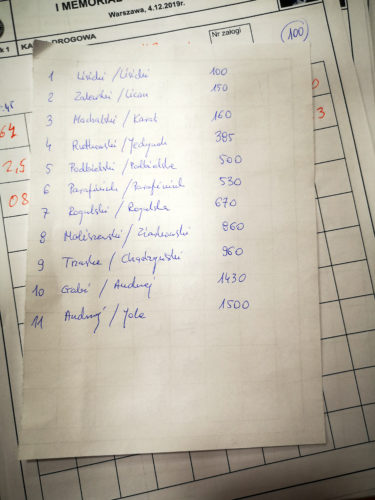 I MEMORIAŁ
Warszawa, 4.12.2019r.
KA DROGOWA
Nr załogi
100
64
2,5
08
3
1 Lisicki / Lisicki 100
2 Zalewski / Licau 150
3 Machalski / Karat 160
4 Rutkowski / Jedynak 385
5 Podbielski / Podbielska 500
6 Parafiniuk / Parafiniuk 530
7 Rogulski / Rogulska 670
8 Maliszewski / Ziatkowski 860
9 Traska / Chądzyński 960
10 Gabć / Andrzej 1430
11 Andrzej / Jola 1500